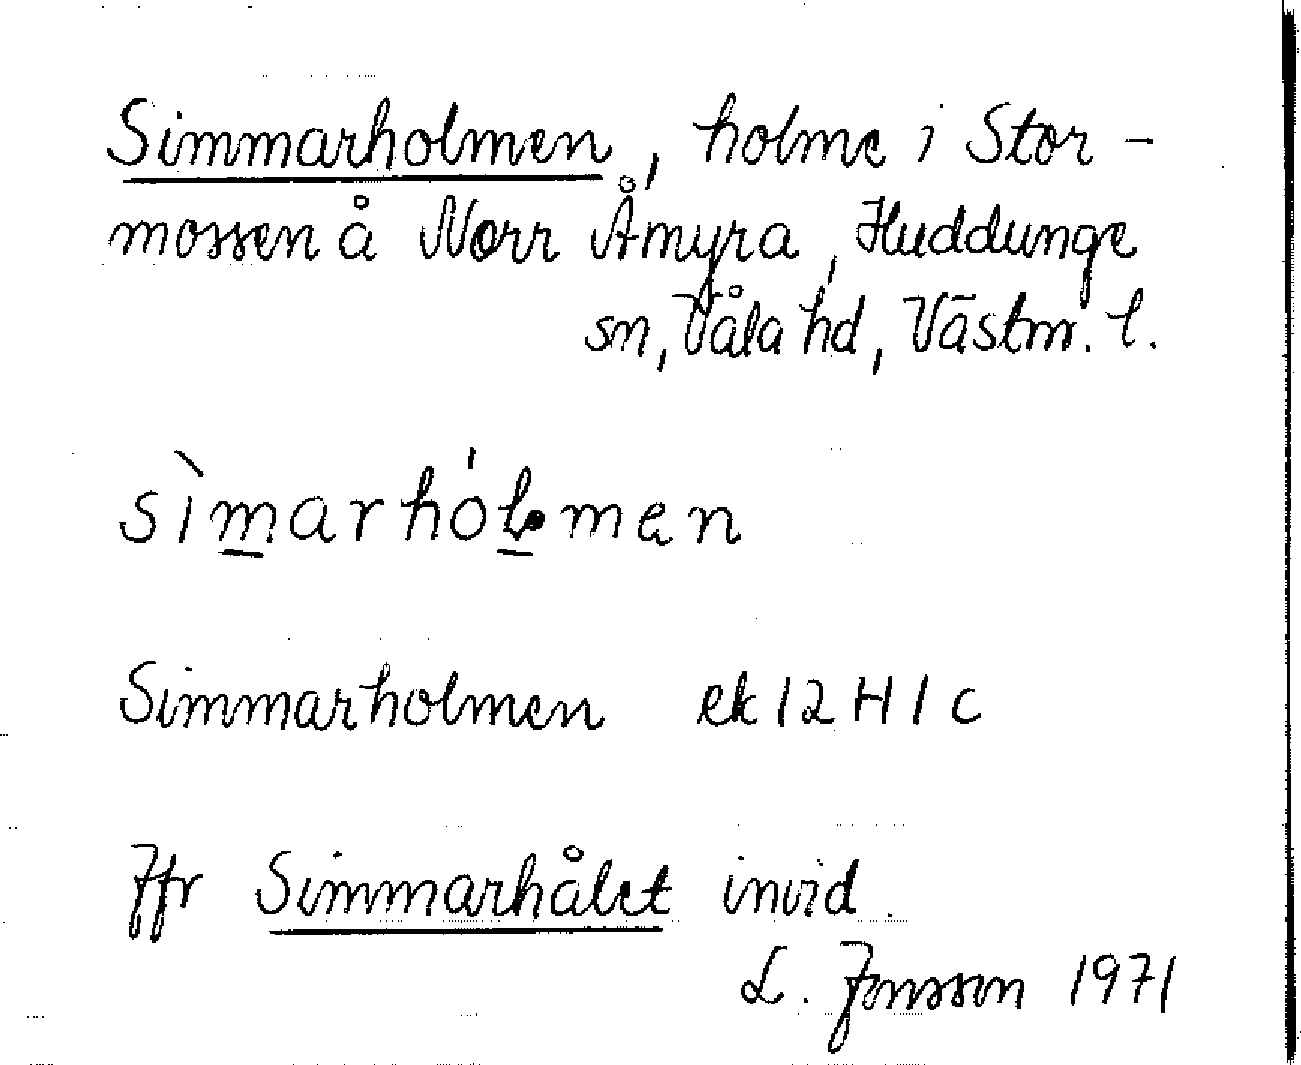 Simmarholmen, holme i Stor-
mossen å Norr Åmyra, Huddunge
sn, Våla hd, Västm. l.
sìmarhólmen
Simmarholmen ek 12 H 1 c
Jfr Simmarhålet invid.
L. Jonsson 1971